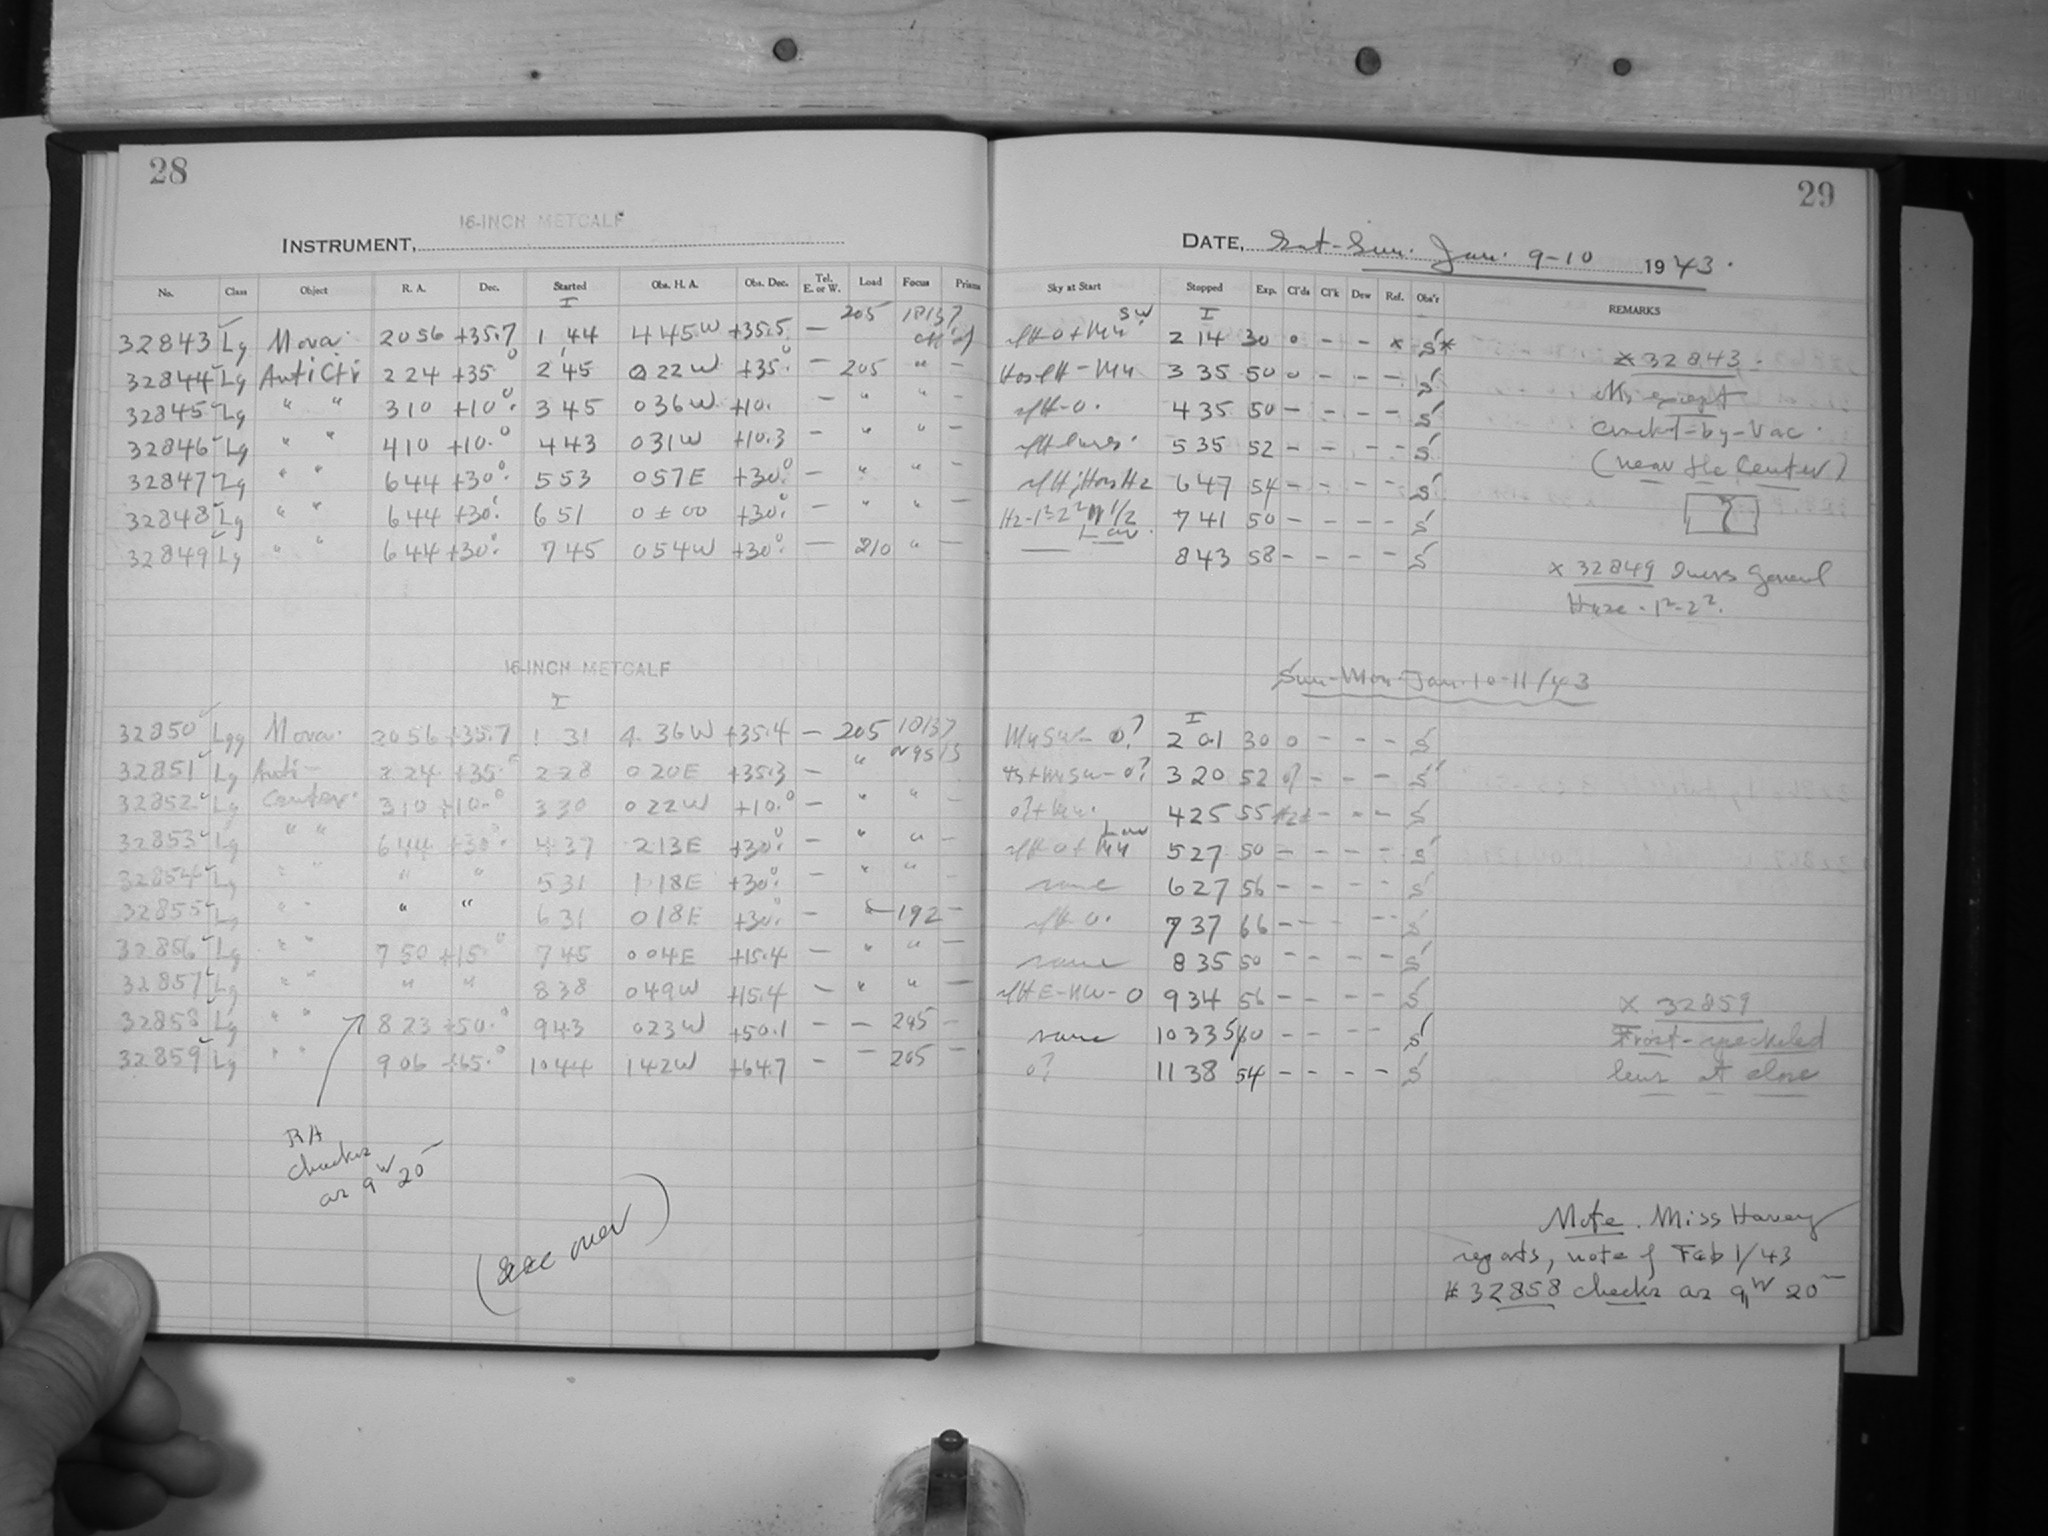 28
16-INCH METCALF
INSTRUMENT,
No. Class Object R. A. Dec. Started Obs. H. A. Obs. Dec. Tel. E. or W. Load Focus Prism
I
32843 Lg Nova. 20 56 +35.7 1 44 4 45 W +35.5 — 205 1813?
32844 Lg AntiCtr 2 24 +35.0 2 45 0 22 W +35.0 — 205 " –
32845 Lg " " 3 10 +10.0 3 45 0 36 W +10. – " " –
32846 Lg " " 4 10 +10.0 4 43 0 31 W +10.3 – " " –
32847 Lg " " 6 44 +30.0 5 53 0 57 E +30.0 – " " –
32848 Lg " " 6 44 +30.0 6 51 0 ± 00 +30.0 – " " –
32849 Lg " " 6 44 +30.0 7 45 0 54 W +30.0 — 210 " –
16-INCH METCALF
I
32850 Lg Nova. 20 56 +35.7 1 31 4 36 W +35.4 – 205 1813?
32851 Lg Anti– 2 24 +35.0 2 28 0 20 E +35.3 – "
32852 Lg Center. 3 10 +10.0 3 30 0 22 W +10.0 – " " –
32853 Lg " " 6 44 +30.0 4 37 2 13 E +30.0 – " " –
32854 Lg " " " " 5 31 1 18 E +30.0 – " " –
32855 Lg " " " " 6 31 0 18 E +30.0 – 192 –
32856 Lg " " 7 50 +15.0 7 45 0 04 E +15.4 – " " –
32857 Lg " " " " 8 38 0 49 W +15.4 – " " –
32858 Lg " " 8 23 +50.0 9 43 0 23 W +50.1 – – 205 –
32859 Lg " " 9 06 +65.0 10 44 1 42 W +64.7 – – 205 –
RA
checks
as 9h 20m
(see over)
29
DATE, Sat-Sun. Jan. 9-10 1943.
Sky at Start Stopped Exp. Cl'ds Cl'k Dew Ref. Obs'r REMARKS
I
2 14 30 0 – – x S*
3 35 50 0 – – – S
4 35 50 – – – – S
5 35 52 – – – – S
6 47 54 – – – – S
7 41 50 – – – – S
8 43 58 – – – – S
x 32843.
by-Vac.
(near the Center)
x 32849 General
Haze. 1²-2².
Sun-Mon-Jan.10-11/43
I
0? 2 01 30 0 – – – S
3 20 52 0? – – – S
4 25 55 – – – S
Low
5 27 50 – – – – S
same 6 27 56 – – – – S
7 37 66 – – – – S
same 8 35 50 – – – – S
E-NW-0 9 34 56 – – – – S
same 10 33 50 – – – S
0? 11 38 54 – – – – S
x 32859
Frost-speckled
lens at close
Note. Miss Harvey
reports, note of Feb 1/43
# 32858 checks as 9h 20m